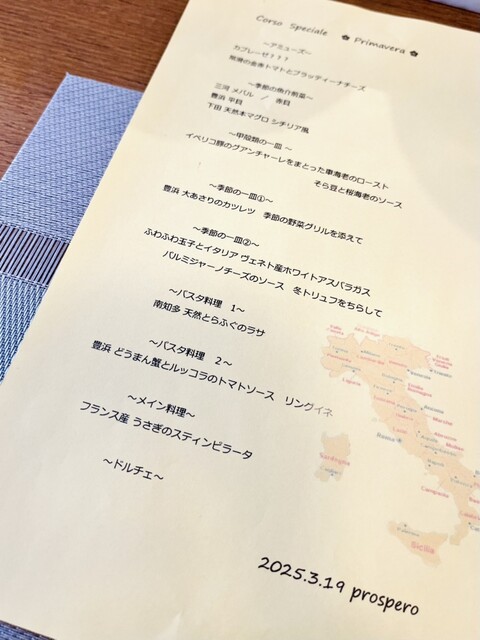 Corso Speciale ✿ Primavera ✿
～アミューズ～
カプレーゼ？？？
飛騨の金赤トマトとブラッティーナチーズ
～季節の魚介前菜～
三河 メバル ／ 赤貝
豊浜 平目
下田 天然本マグロ シチリア風
～甲殻類の一皿 ～
イベリコ豚のグアンチャーレをまとった車海老のロースト
そら豆と桜海老のソース
～季節の一皿①～
豊浜 大あさりのカツレツ 季節の野菜グリルを添えて
～季節の一皿②～
ふわふわ玉子とイタリア ヴェネト産ホワイトアスパラガス
パルミジャーノチーズのソース 冬トリュフをちらして
～パスタ料理 1～
南知多 天然とらふぐのラサ
～パスタ料理 2～
豊浜 どうまん蟹とルッコラのトマトソース リングイネ
～メイン料理～
フランス産 うさぎのスティンピラータ
～ドルチェ～
Liguria
Roma
Lazio
Sardegna
Campania
Sicilia
2025.3.19 prospero